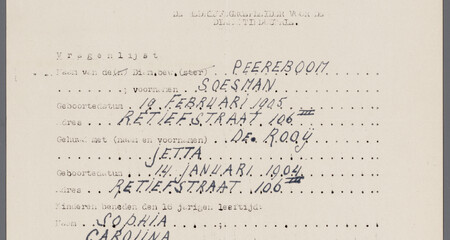 Vragenlijst
Naam van de(n) Dienstw.(ster) PEEREBOOM
; voornamen SOESMAN
Geboortedatum 19 FEBRUARI 1905
Adres RETIEFSTRAAT 106 III
Gehuwd met (naam en voornamen) DE ROOY
JETTA
Geboortedatum 14 JANUARI 1904
Adres RETIEFSTRAAT 106 III
Kinderen beneden den 16 jarigen leeftijd:
Naam SOPHIA
CAROLINA